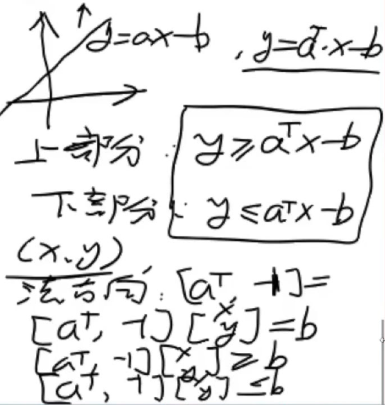 y=ax-b , y=aᵀ·x-b
上部分: y≥aᵀx-b
下部分: y≤aᵀx-b
(x,y)
法方向: [aᵀ, -1]=
[aᵀ, -1][x y]=b
[aᵀ, -1][x y]≥b
[aᵀ, -1][x y]≤b